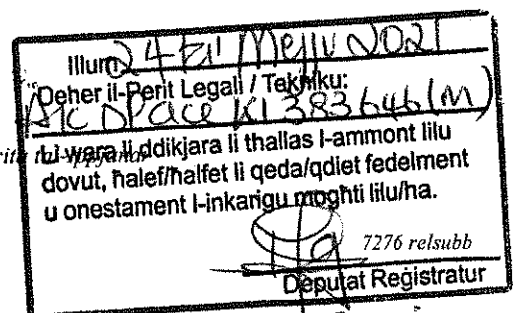 Illum 24 ta' Mejju 2021
Deher il-Perit Legali / Tekniku:
AIC D Pace KI 383646(M)
Li wara li ddikjara li tħallas l-ammont lilu
dovut, ħalef/ħalfet li qeda/qdiet fedelment
u onestament l-inkarigu mogħti lilu/ha.
7276 relsubb
Deputat Reġistratur